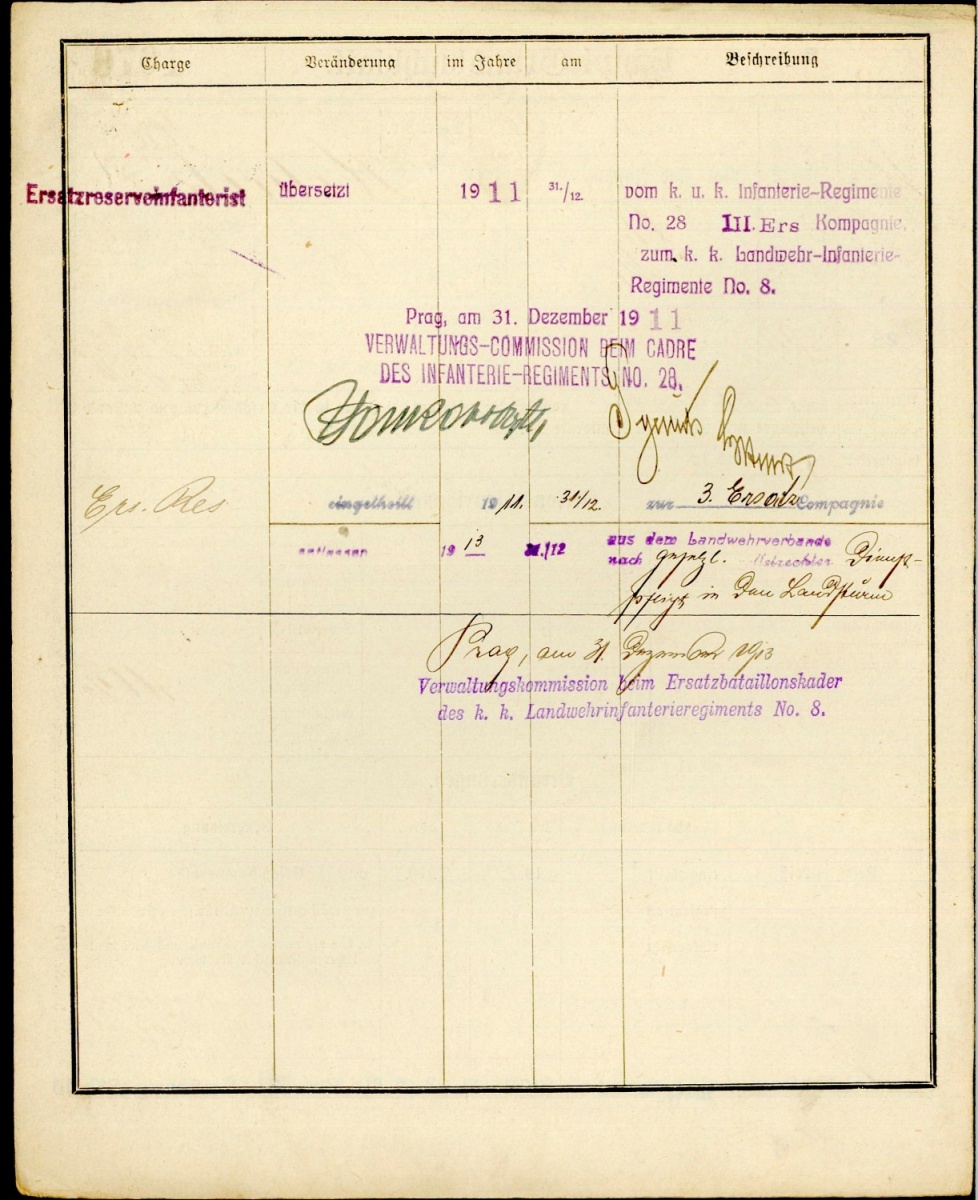 Charge Veränderung im Jahre am Beschreibung
Ersatzreserveinfanterist übersetzt 1911 31./12. vom k. u. k. Infanterie-Regimente
No. 28 III. Ers Kompagnie,
zum k. k. Landwehr-Infanterie-
Regimente No. 8.
Prag, am 31. Dezember 1911
VERWALTUNGS-COMMISSION BEIM CADRE
DES INFANTERIE-REGIMENTS NO. 28.
Ers. Res eingetheilt 1911. 31/12. zur 3. Ersatz Compagnie
entlassen 1913 31./12 aus dem Landwehrverbande
nach gesetzl. Dienst-
pflicht in den Landsturm
Prag, am 31. Dezember 1913
Verwaltungskommission beim Ersatzbataillonskader
des k. k. Landwehrinfanterieregiments No. 8.